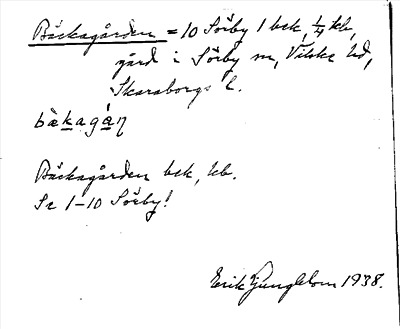 Bäckagården = 10 Sörby 1 bek, 1/4 kb,
gård i Sörby sn, Vilske hd,
Skaraborgs l.
bèkagán
Bäckagården bek, kb.
Se 1-10 Sörby!
Erik Ljungblom 1938.